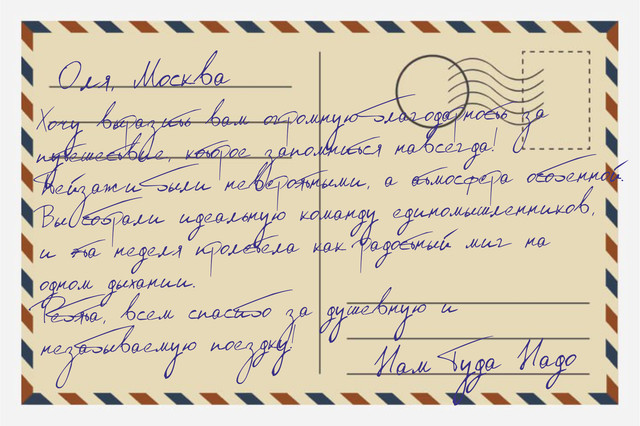 Оля, Москва
Хочу выразить вам огромную благодарность за
путешествие, которое запомнится навсегда!
Пейзажи были невероятными, а атмосфера особенной.
Вы собрали идеальную команду единомышленников,
и эта неделя пролетела как радостный миг на
одном дыхании.
Ребята, всем спасибо за душевную и
незабываемую поездку!
Нам Туда Надо